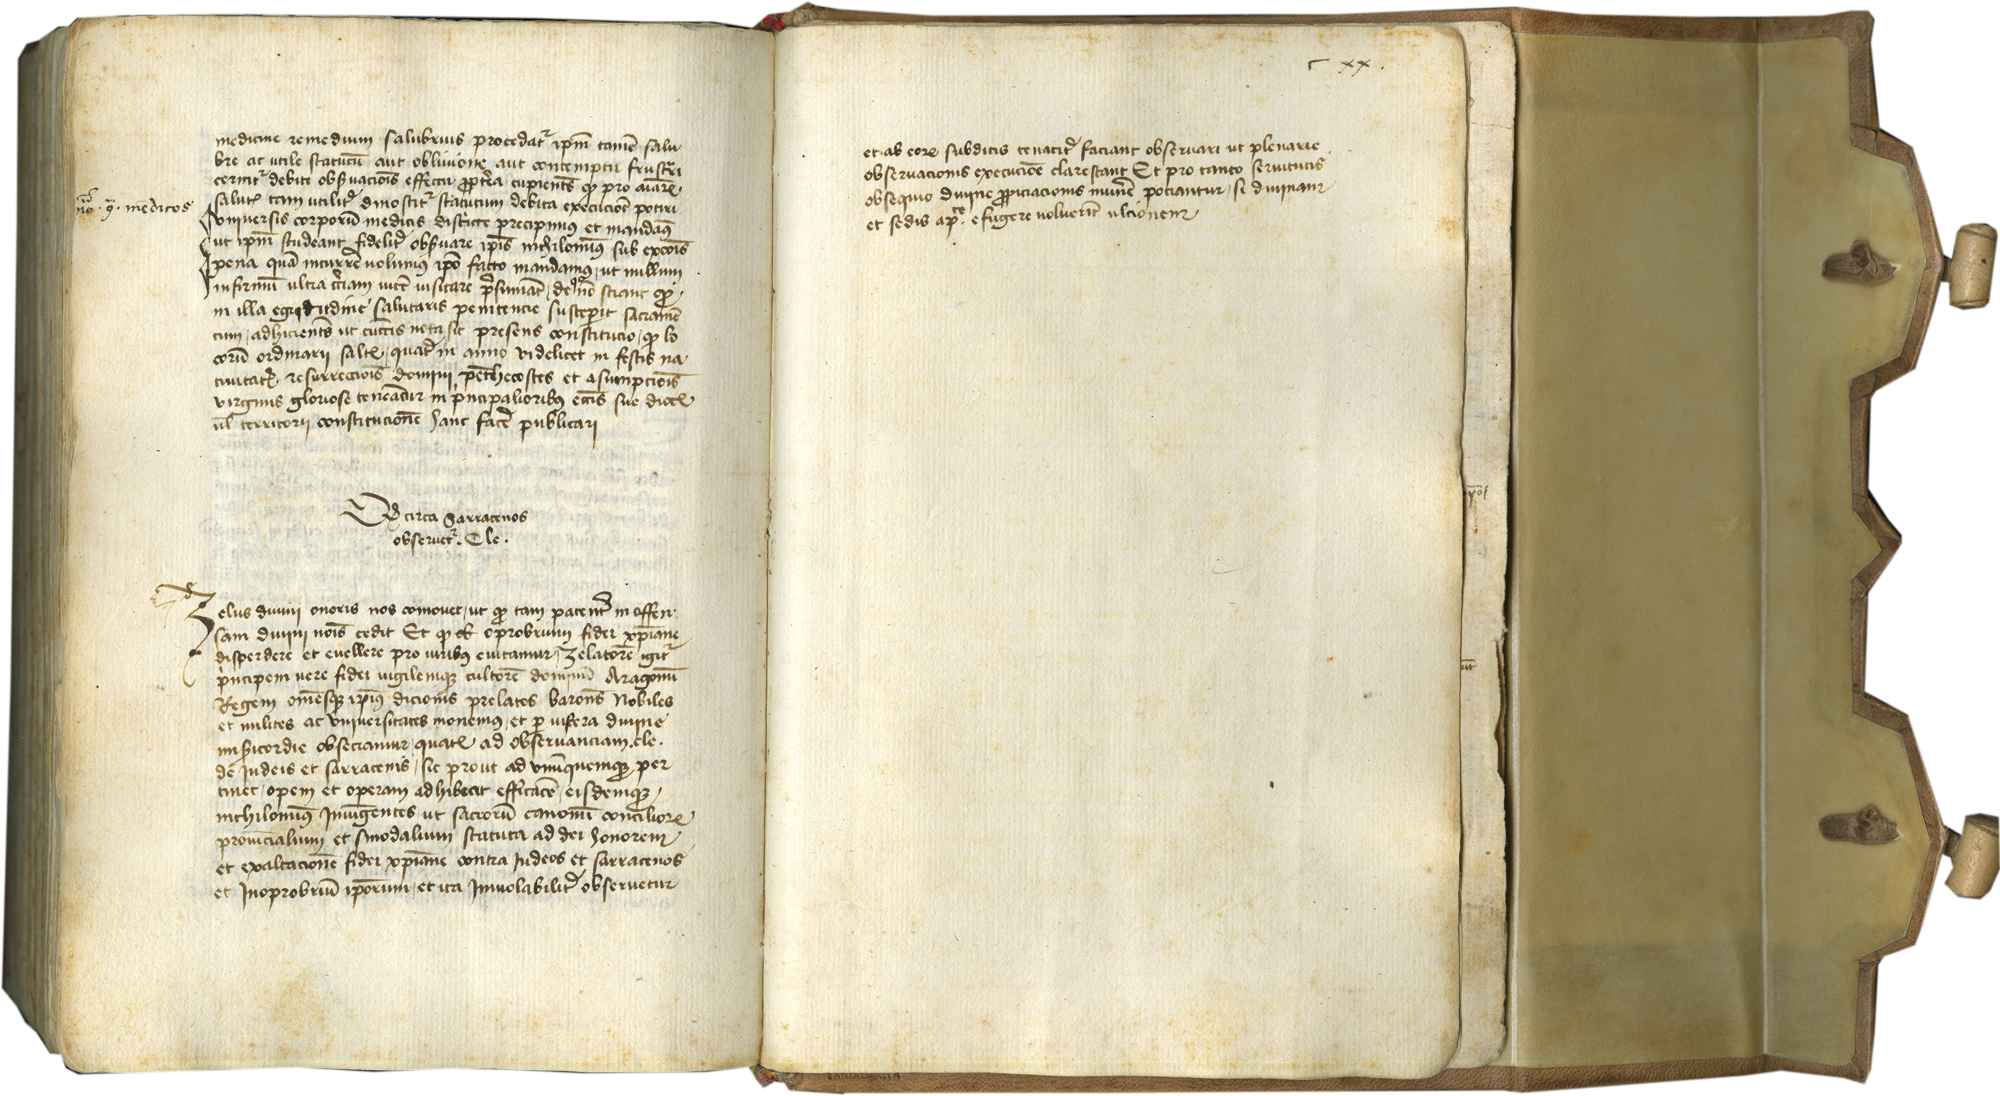 medicine remedium salubrius procedat² ip̄m tamē salu
bre ac utile statutū aut oblivione aut contemptu frustri
cernit² debite obs̄vacioīs effectu pp̄t̄ea cupient̄s qȝ pro aīaꝝ
salut̄ tam utilit̄ dinoscit² statutum debita execucioē potiri
no. medicos
universis corporū medicis districte precipimus et mandaq̄
ut ip̄m studeant fidelit̄ obs̄vare ip̄is nichilomiꝰ sub excoīs
pena quā incurrē volumus ip̄o facto mandamus, ut nullum
infirmū ultra t̄ciam vicē visitare p̄sumāt, de quo nō sciant qȝ
in illa egritudine salutaris penitencie susceperit sacramē
tum, adhicient̄s ut cūctis nota sit presens constitucio, qȝ lo
corū ordinarii salt̄, quat̄ in anno videlicet in festis na
tivitat̄, resurreccioīs domini, pēthecostes et asumpcioīs
virginis gloriose teneātur in p̄ncipalioribꝰ ecc̄īs sue dioc̄
ul̄ territorii constitucionē hanc facē publicari
Qd circa sarracenos
observet². Cle.
Zelus divini onoris nos comovet, ut qȝ tam patent̄ in offen
sam divini noīs cedit Et qȝ ob oprobrium fidei xp̄iane
disperdere et evellere pro viribꝰ enitamur, Zelatorē igit²
p̄ncipem vere fidei vigilemqȝ cultorē dominū Aragonū
Regem om̄esqȝ ip̄ius dicionis prelatos baron̄s Nobiles
et milites ac universitates monemus, et p̱ viscera divine
mis̄icordie obsecramur, quat̄ ad observanciam. cle.
de Judeis et sarracenis, sic prout ad unūquemqȝ per
tinet, opem et operam adhibeāt efficacē, eisdemqȝ
nichilomiꝰ Iniūgentes ut sacrorū canonū conciliorꝝ
provīcialium et sinodalium statuta ad dei honorem
et exaltacionē fidei xp̄iane contra Judeos et sarracenos
et Inoprobriū ip̄orum, et ita Inviolabilit̄ observetur
xx.
et ab eorꝝ subditis tenacit̄ faciant observari ut plenarie
observacionis execucioē clarescant Et pro tanto servitutis
obsequio divine propiciacionis munē pociantur, se divinam
et sedis ap̄ce. efugere voluerīt ulcionem